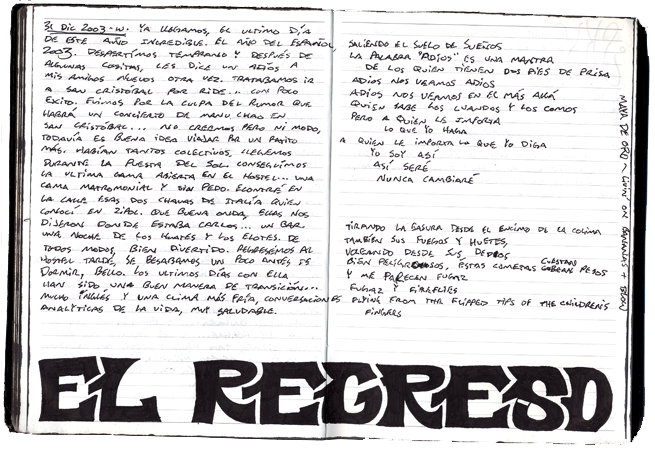 31 DIC 2003 - W. YA LLEGAMOS, EL ULTIMO DÍA
DE ESTE AÑO INCREDIBLE. EL AÑO DEL ESPAÑOL,
2003. DESPERTIMOS TEMPRANO Y DESPUÉS DE
ALGUNAS COSITAS, LES DICE UN ADIÓS A
MIS AMIGOS NUEVOS OTRA VEZ. TRATABAMOS IR
A SAN CRISTÓBAL POR RIDE... CON POCO
EXITO. FUIMOS POR LA CULPA DEL RUMOR QUE
HABRÁ UN CONCIERTO DE MANU CHAO EN
SAN CRISTÓBAL... NO CREEMOS PERO NI MODO,
TODAVÍA ES BUENA IDEA VIAJAR POR UN RATITO
MÁS. HABÍAN TANTOS COLECTIVOS, LLEGEMOS
DURANTE LA PUESTA DEL SOL. CONSEGUÍMOS
LA ULTIMA CAMA ABIERTA EN EL HOSTEL... UNA
CAMA MATROMONIAL Y SIN PEDO. ECONTRÉ EN
LA CALLE ESAS DOS CHAVAS DE ITALIA QUIEN
CONOCÍ EN ZIPOL. QUE BUENA ONDA, ELLAS NOS
DIJERON DONDE ESTABA CARLOS... UN BAR
UNA NOCHE DE LOS KUATES Y LOS ELOTES. DE
TODOS MODOS, BIEN DIVERTIDO. REGRESÉMOS AL
HOSTEL TARDE, SE BESABAMOS UN POCO ANTES DE
DORMIR, BELLO. LOS ULTIMOS DÍAS CON ELLA
HAN SIDO UNA BUEN MANERA DE TRANSICIÓN...
MUCHO INGLÉS Y UNA CLIMA MÁS FRÍA, CONVERSACIONES
ANALÍTICAS DE LA VIDA, MUY SALUDABLE.
SALIENDO EL SUELO DE SUEÑOS
LA PALABRA "ADIOS" ES UNA MANTRA
DE LOS QUIEN TIENEN DOS PIES DE PRISA
ADIOS NOS VEAMOS ADIOS
ADIOS NOS VEAMOS EN EL MÁS ALLÁ
QUIEN SABE LOS CUANDOS Y LOS COMOS
PERO A QUIEN LE IMPORTA
LO QUE YO HAGA
A QUIEN LE IMPORTA LO QUE YO DIGA
YO SOY ASÍ
ASÍ SERÉ
NUNCA CAMBIARÉ
TIRANDO LA BASURA DESDE EL ENCIMO DE LA COLIMA
TAMBIÉN SUS FUEGOS Y HUETES,
VOLEANDO DESDE SUS DEDOS
BIEN PELIGROSOS, ESTAS COMETAS CUESTAN PESOS
Y ME PARECEN FUGAZ
FUGAZ Y FIREFLIES
FLYING FROM THE FLIPPED TIPS OF THE CHILDREN'S
FINGERS
MAYA DE ORO ~ LIVIN' ON BANANAS +
EL REGRESO